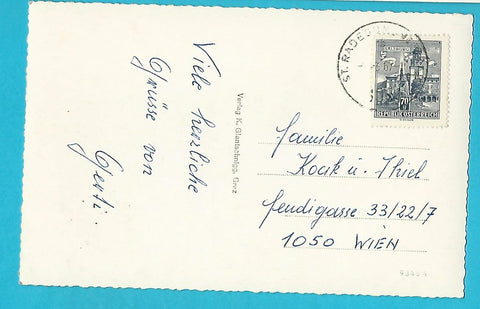 Viele herzliche
Grüsse von
Gerti.
Verlag K. Glantschnigg, Graz
ST. RADEGUND
SALZBURG
REPUBLIK ÖSTERREICH
Familie
Kocik u. Thiel
Fendigasse 33/22/7
1050 WIEN